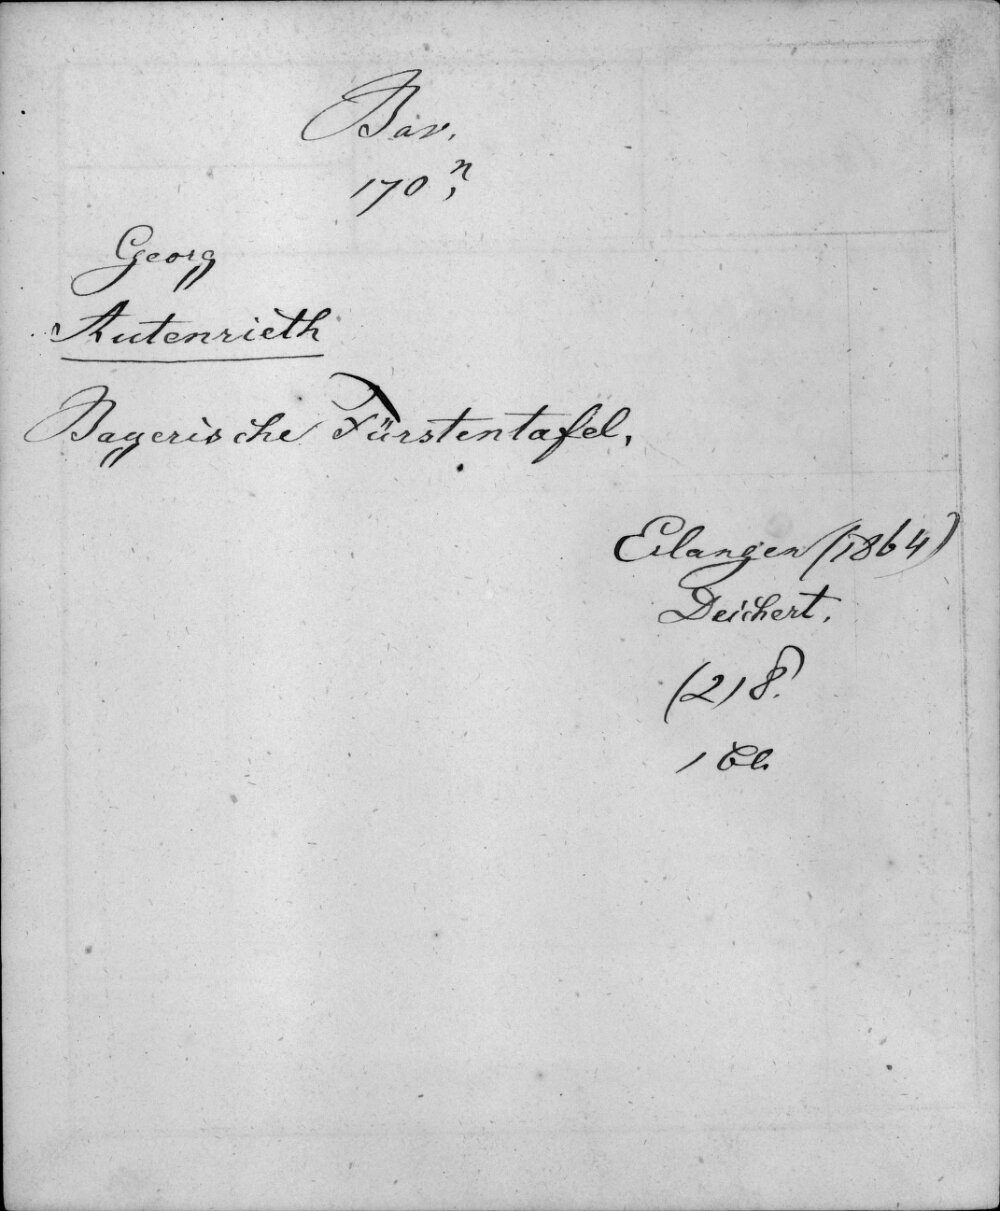 Bav.
170 n,
Georg
Autenrieth
Bayerische Fürstentafel,
Erlangen (1864)
Deichert.
(2) 8.
1 Bl.